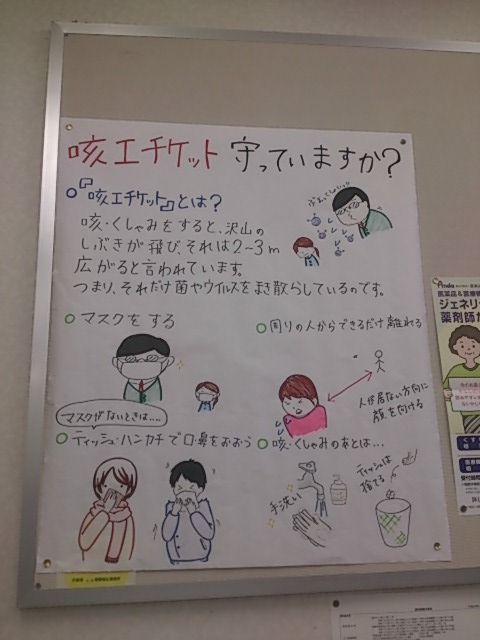 咳エチケット 守っていますか?
『咳エチケット』とは?
咳・くしゃみをすると、沢山の
しぶきが飛び、それは2~3m
広がると言われています。
つまり、それだけ菌やウイルスをまき散らしているのです。
マスクをする
周りの人からできるだけ離れる
人が居ない方向に
顔を向ける
マスクがないときは....
ティッシュ・ハンカチで口・鼻をおおう
咳・くしゃみのあとは...
手洗い
ティッシュは
捨てる
医薬品&医療
ジェネリ
薬剤師が